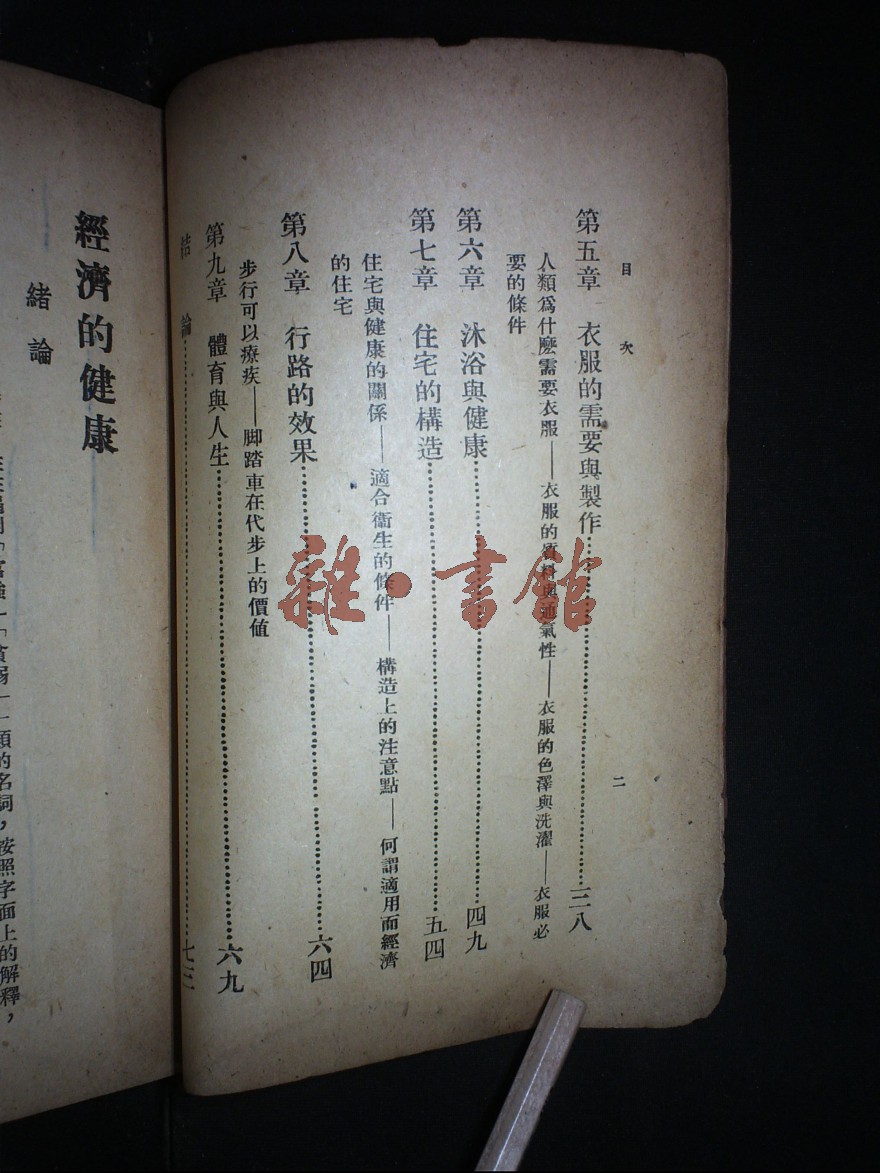 目次
第五章 衣服的需要與製作……三八
人類爲什麼需要衣服——衣服的質料與通氣性——衣服的色澤與洗濯——衣服必
要的條件
第六章 沐浴與健康……四九
第七章 住宅的構造……五四
住宅與健康的關係——適合衛生的條件——構造上的注意點——何謂適用而經濟
的住宅
第八章 行路的效果……六四
步行可以療疾——脚踏車在代步上的價值
第九章 體育與人生……六九
結論……七三
二
經濟的健康
緒論
的名詞，按照字面上的解釋，
雜·書館